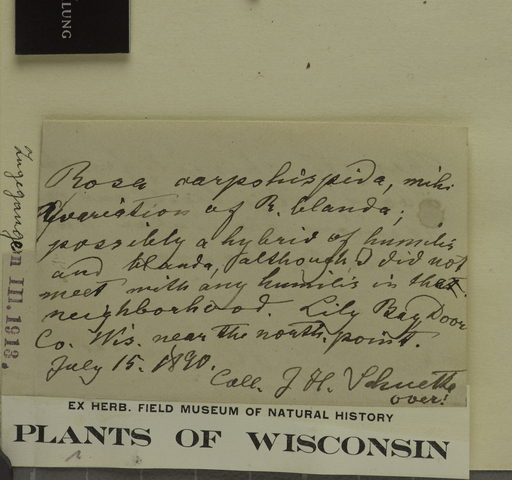 LUNG
Rosa carpohispida, mihi
variation of R. blanda;
possibly a hybrid of humilis
and blanda, although I did not
meet with any humilis in that
neighborhood. Lily Bay Door
Co. Wis. near the north. point.
July 15. 1890.
Coll. J. H. Schuette
over!
Zugegangen III. 1913.
EX HERB. FIELD MUSEUM OF NATURAL HISTORY
PLANTS OF WISCONSIN